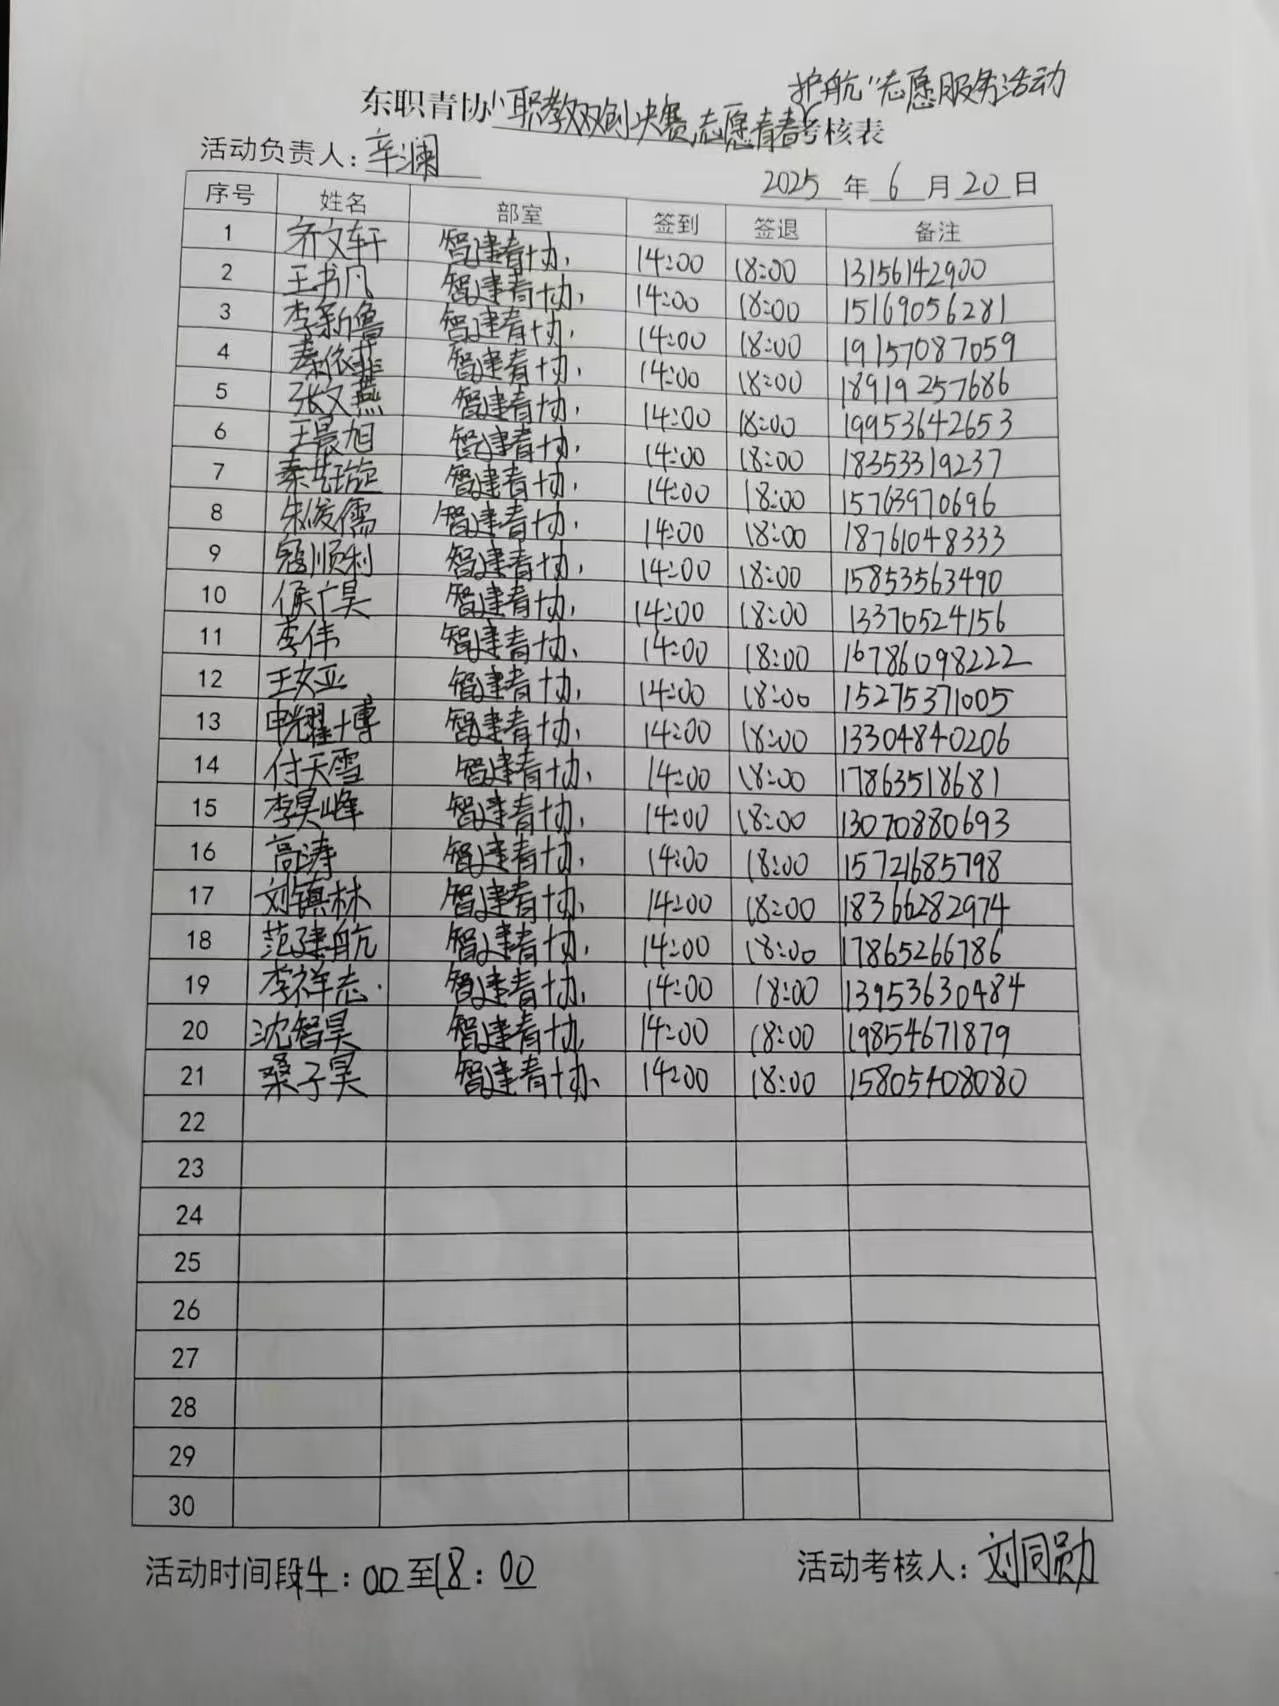 护航"志愿服务活动
东职青协"职教双创决赛,志愿青春考核表
活动负责人：辛澜
2025 年 6 月 20 日
序号 姓名 部室 签到 签退 备注
1 齐文轩 智建青协 14:00 18:00 13156142900
2 王书凡 智建青协 14:00 18:00 15169056281
3 李新鲁 智建青协 14:00 18:00 19157087059
4 秦依菲 智建青协 14:00 18:00 18919257686
5 张文燕 智建青协 14:00 18:00 19953642653
6 王晨旭 智建青协 14:00 18:00 18353319237
7 智建青协 14:00 18:00 15763970696
8 朱俊儒 智建青协 14:00 18:00 18761048333
9 寇顺利 智建青协 14:00 18:00 15853563490
10 侯广昊 智建青协 14:00 18:00 13370524156
11 李伟 智建青协 14:00 18:00 16786098222
12 王文亚 智建青协 14:00 18:00 15275371005
13 申耀博 智建青协 14:00 18:00 13304840206
14 付天雪 智建青协 14:00 18:00 17863518681
15 李昊峰 智建青协 14:00 18:00 13070880693
16 高涛 智建青协 14:00 18:00 15721685798
17 刘镇林 智建青协 14:00 18:00 18366282974
18 范建航 智建青协 14:00 18:00 17865266786
19 李祥志 智建青协 14:00 18:00 13953630484
20 沈智昊 智建青协 14:00 18:00 19854671879
21 桑子昊 智建青协 14:00 18:00 15805408080
22
23
24
25
26
27
28
29
30
活动时间段14：00至18：00 活动考核人：刘同勋